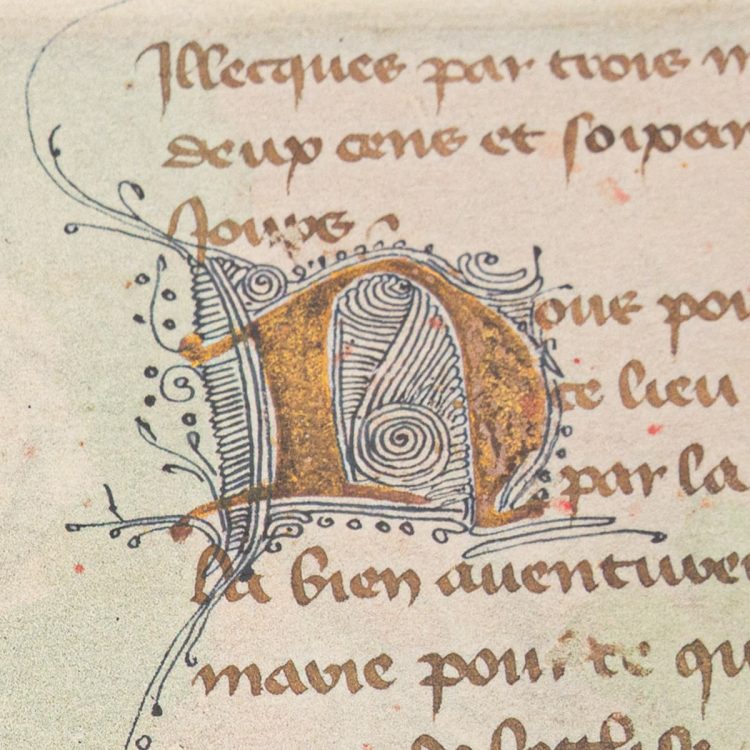 Illecques par trois m
deux cens et soixan
Jours
Nous pou
ce lieu
par la
la bien auenturee
marie pour ce qu
de